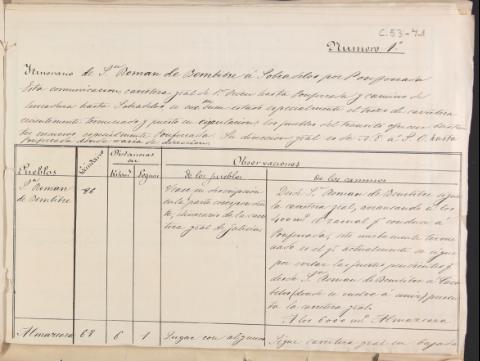 C.53-41
Numero 1º
Itinerario de Sn Roman de Bembibre á Sobradelos por Ponferrada
Esta comunicacion, carretera gral de 1er orden hasta Ponferrada y camino de
herradura hasta Sobradelos es en buen estado especialmente el trozo de carretera
recientemente terminado y puesto en esplotacion; los pueblos del transito ofrecen bastantes
recursos especialmente Ponferrada. Su direccion gral es de N.E. a S.O. hasta
Ponferrada donde varia de direccion.
Pueblos
Vecindario
Distancias en
Kiloms
Leguas
Observaciones
de los pueblos
de los caminos
Sn Roman
de Bembibre
86
Vease su descripcion
en la parte correspondien
te, itinerario de la carre
tera gral de Galicia
Desde Sn Roman de Bembibre sigue
la carretera gral, arrancando á los
400 ms el ramal qe conduce á
Ponferrada; este nuevamente termi
nado es el qe actualmente se sigue
por evitar las fuertes pendientes qe
desde Sn Roman de Bembibre á Caca
belos (donde se vuelve á unir) presenta
la carretera gral.
A los 6000 ms Almazcara
Almazcara
68
6
1
Lugar con algunos
Sigue carretera gral en bajada